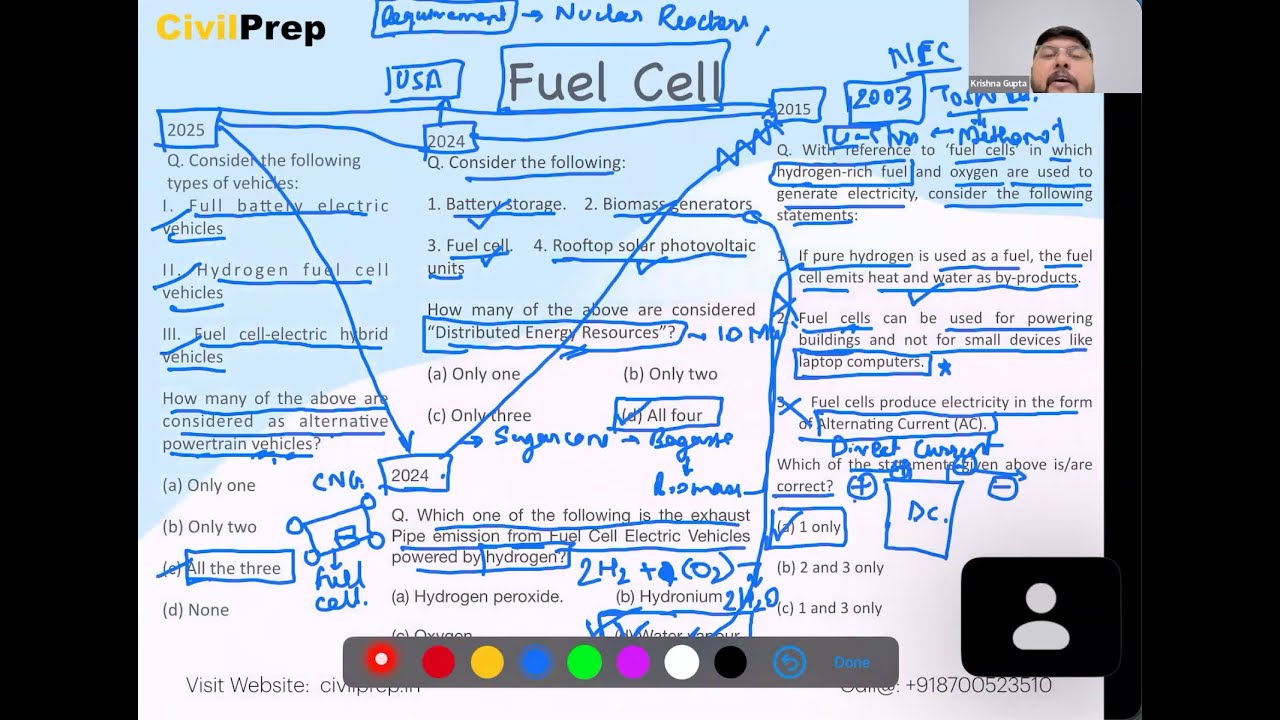 CivilPrep
Requirement → Nuclear Reactors,
Fuel Cell
USA
NEC
Krishna Gupta
2003 Toshiba.
← Methanol
2025
Q. Consider the following
types of vehicles:
I. Full battery electric
vehicles
II. Hydrogen fuel cell
vehicles
III. Fuel cell-electric hybrid
vehicles
How many of the above are
considered as alternative
powertrain vehicles?
(a) Only one
(b) Only two
(c) All the three
(d) None
CNG.
Fuel
cell.
2024
Q. Consider the following:
1. Battery storage. 2. Biomass generators
3. Fuel cell. 4. Rooftop solar photovoltaic
units
How many of the above are considered
"Distributed Energy Resources"?
~ 10 M
(a) Only one (b) Only two
(c) Only three (d) All four
→ Sugarcane → Bagasse
Biomass
2024
Q. Which one of the following is the exhaust
Pipe emission from Fuel Cell Electric Vehicles
powered by hydrogen?
2H2 + (O2) →
2H2O
(a) Hydrogen peroxide. (b) Hydronium
(c) Oxygen (d) Water vapour
2015
Q. With reference to 'fuel cells' in which
hydrogen-rich fuel and oxygen are used to
generate electricity, consider the following
statements:
1. If pure hydrogen is used as a fuel, the fuel
cell emits heat and water as by-products.
2. Fuel cells can be used for powering
buildings and not for small devices like
laptop computers. *
3. Fuel cells produce electricity in the form
of Alternating Current (AC).
Direct Current
Which of the statements given above is/are
correct?
+ −
DC.
(a) 1 only
(b) 2 and 3 only
(c) 1 and 3 only
Done
Visit Website: civilprep.in
Call@: +918700523510